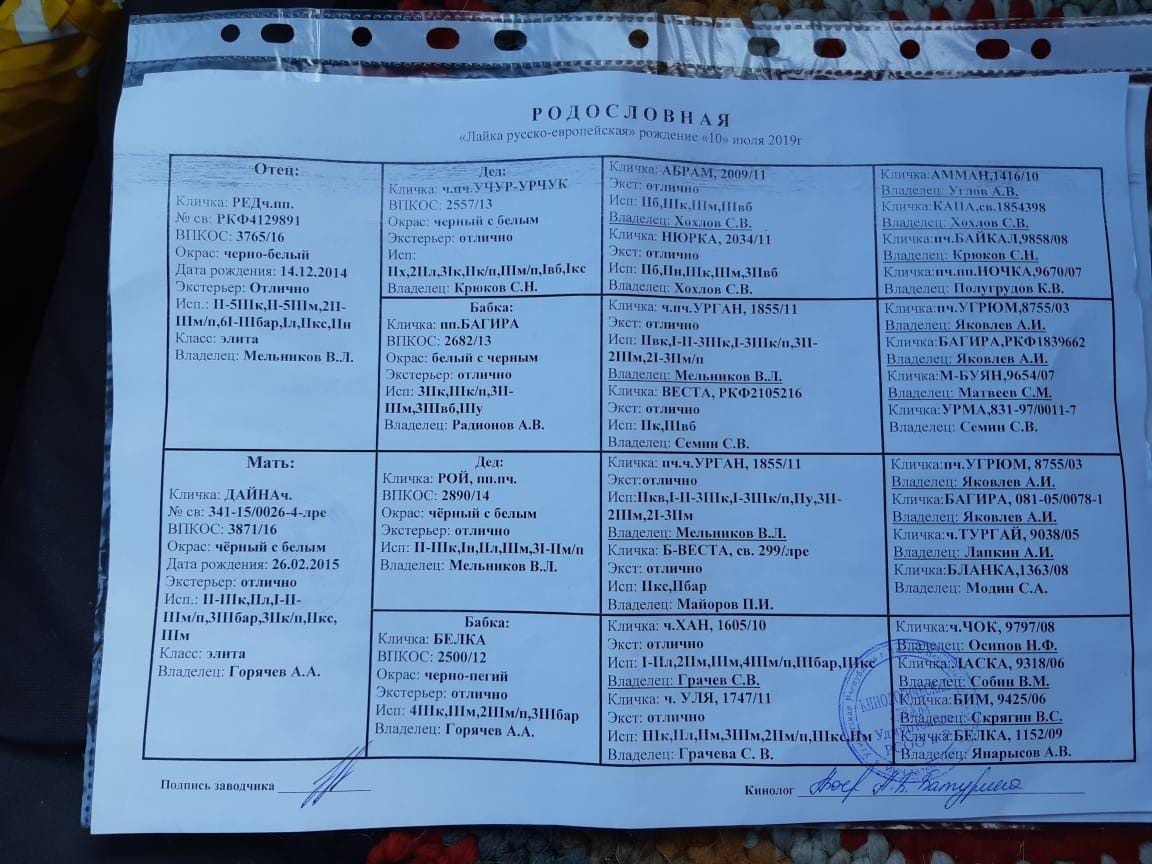 РОДОСЛОВНАЯ
«Лайка русско-европейская» рождение «10» июля 2019г
Отец:
Кличка: РЕДч.пп.
№ св: РКФ4129891
ВПКОС: 3765/16
Окрас: черно-белый
Дата рождения: 14.12.2014
Экстерьер: Отлично
Исп.: II-5IIк,II-5IIм,2II-
IIIм/п,6I-IIIбар,Iл,IIкс,IIн
Класс: элита
Владелец: Мельников В.Л.
Дед:
Кличка: ч.пч.УЧУР-УРЧУК
ВПКОС: 2557/13
Окрас: черный с белым
Экстерьер: отлично
Исп:
IIх,2IIл,3Iк,IIк/п,IIIм/п,Iвб,Iкс
Владелец: Крюков С.Н.
Бабка:
Кличка: пп.БАГИРА
ВПКОС: 2682/13
Окрас: белый с черным
Экстерьер: отлично
Исп: 3IIк,IIIк/п,3II-
IIIм,3IIIвб,IIIу
Владелец: Радионов А.В.
Кличка: АБРАМ, 2009/11
Экст: отлично
Исп: IIб,IIIк,IIIм,IIIвб
Владелец: Хохлов С.В.
Кличка: НЮРКА, 2034/11
Экст: отлично
Исп: IIб,IIн,IIIк,IIIм,3IIвб
Владелец: Хохлов С.В.
Кличка: ч.пп.УРГАН, 1855/11
Экст: отлично
Исп: IIвк,I-II-3IIIк,I-3IIIк/п,3II-
2IIIм,2I-3IIм/п
Владелец: Мельников В.Л.
Кличка: ВЕСТА, РКФ2105216
Экст: отлично
Исп: IIк,IIIвб
Владелец: Семин С.В.
Кличка:АММАН,1416/10
Владелец: Углов А.В.
Кличка: КАПА,св.1854398
Владелец: Хохлов С.В.
Кличка:пч.БАЙКАЛ,9858/08
Владелец: Крюков С.Н.
Кличка:пч.пп.НОЧКА,9670/07
Владелец: Полугрудов К.В.
Кличка:пч.УГРЮМ,8755/03
Владелец: Яковлев А.И.
Кличка:БАГИРА,РКФ1839662
Владелец: Яковлев А.И.
Кличка:М-БУЯН,9654/07
Владелец: Матвеев С.М.
Кличка:УРМА,831-97/0011-7
Владелец: Семин С.В.
Мать:
Кличка: ДАЙНАч.
№ св: 341-15/0026-4-лре
ВПКОС: 3871/16
Окрас: чёрный с белым
Дата рождения: 26.02.2015
Экстерьер: отлично
Исп.: II-IIIк,IIл,I-II-
IIIм/п,3IIIбар,3IIк/п,IIкс,
IIIм
Класс: элита
Владелец: Горячев А.А.
Дед:
Кличка: РОЙ, пп.пч.
ВПКОС: 2890/14
Окрас: чёрный с белым
Экстерьер: отлично
Исп: II-IIIк,Iн,IIл,IIIм,3I-IIм/п
Владелец: Мельников В.Л.
Бабка:
Кличка: БЕЛКА
ВПКОС: 2500/12
Окрас: черно-пегий
Экстерьер: отлично
Исп: 4IIIк,IIIм,2IIIм/п,3IIIбар
Владелец: Горячев А.А.
Кличка: пч.ч.УРГАН, 1855/11
Экст:отлично
Исп:IIкв,I-II-3IIIк,I-3IIIк/п,IIу,3II-
2IIIм,2I-3IIм
Владелец: Мельников В.Л.
Кличка: Б-ВЕСТА, св. 299/лре
Экст: отлично
Исп: IIкс,IIбар
Владелец: Майоров П.И.
Кличка: ч.ХАН, 1605/10
Экст: отлично
Исп: I-IIл,2IIм,IIIм,4IIIм/п,IIIбар,IIIкс
Владелец: Грачев С.В.
Кличка: ч. УЛЯ, 1747/11
Экст: отлично
Исп: IIIк,IIл,IIм,3IIIм,2IIм/п,IIIкс,IIм
Владелец: Грачева С. В.
Кличка:пч.УГРЮМ, 8755/03
Владелец: Яковлев А.И.
Кличка:БАГИРА, 081-05/0078-1
Владелец: Яковлев А.И.
Кличка:ч.ТУРГАЙ, 9038/05
Владелец: Лапкин А.И.
Кличка:БЛАНКА,1363/08
Владелец: Модин С.А.
Кличка:ч.ЧОК, 9797/08
Владелец: Осипов Н.Ф.
Кличка:ЛАСКА, 9318/06
Владелец: Собин В.М.
Кличка:БИМ, 9425/06
Владелец: Скрягин В.С.
Кличка:БЕЛКА, 1152/09
Владелец: Янарысов А.В.
Подпись заводчика
Кинолог